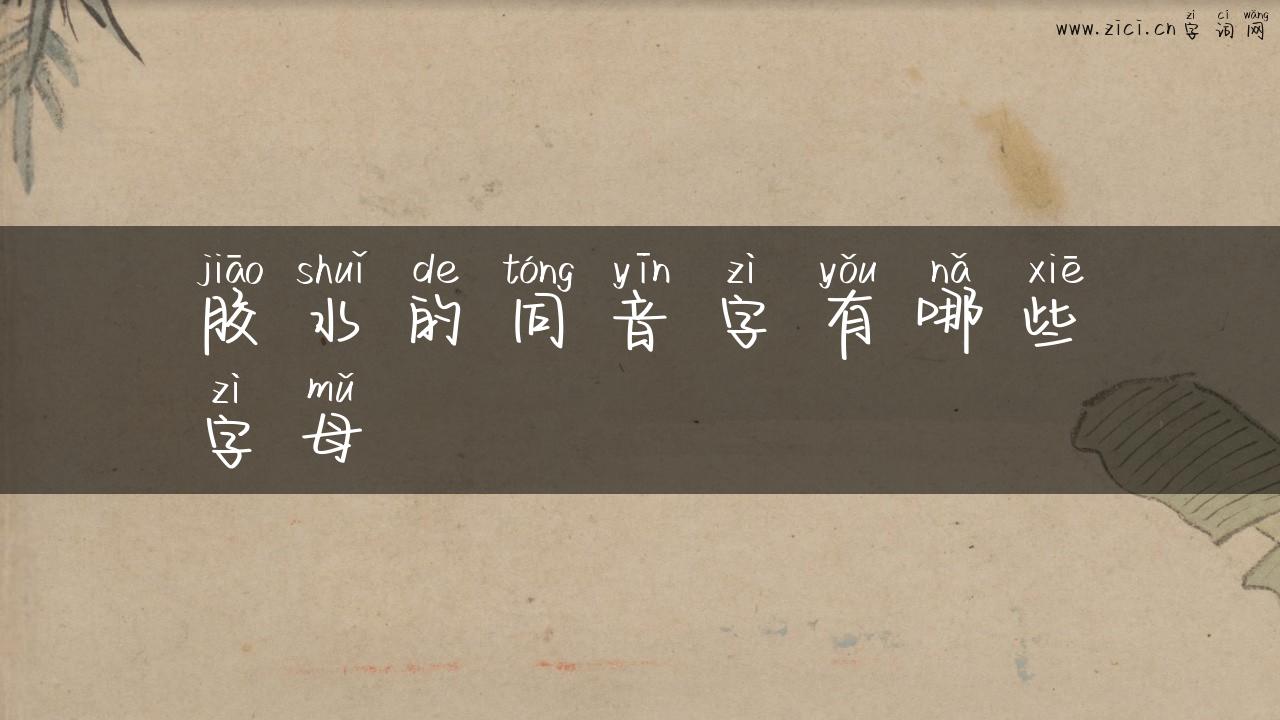 zì cí wǎng
www.zici.cn 字 词 网
jiāo shuǐ de tóng yīn zì yǒu nǎ xiē
胶 水 的 同 音 字 有 哪 些
zì mǔ
字 母